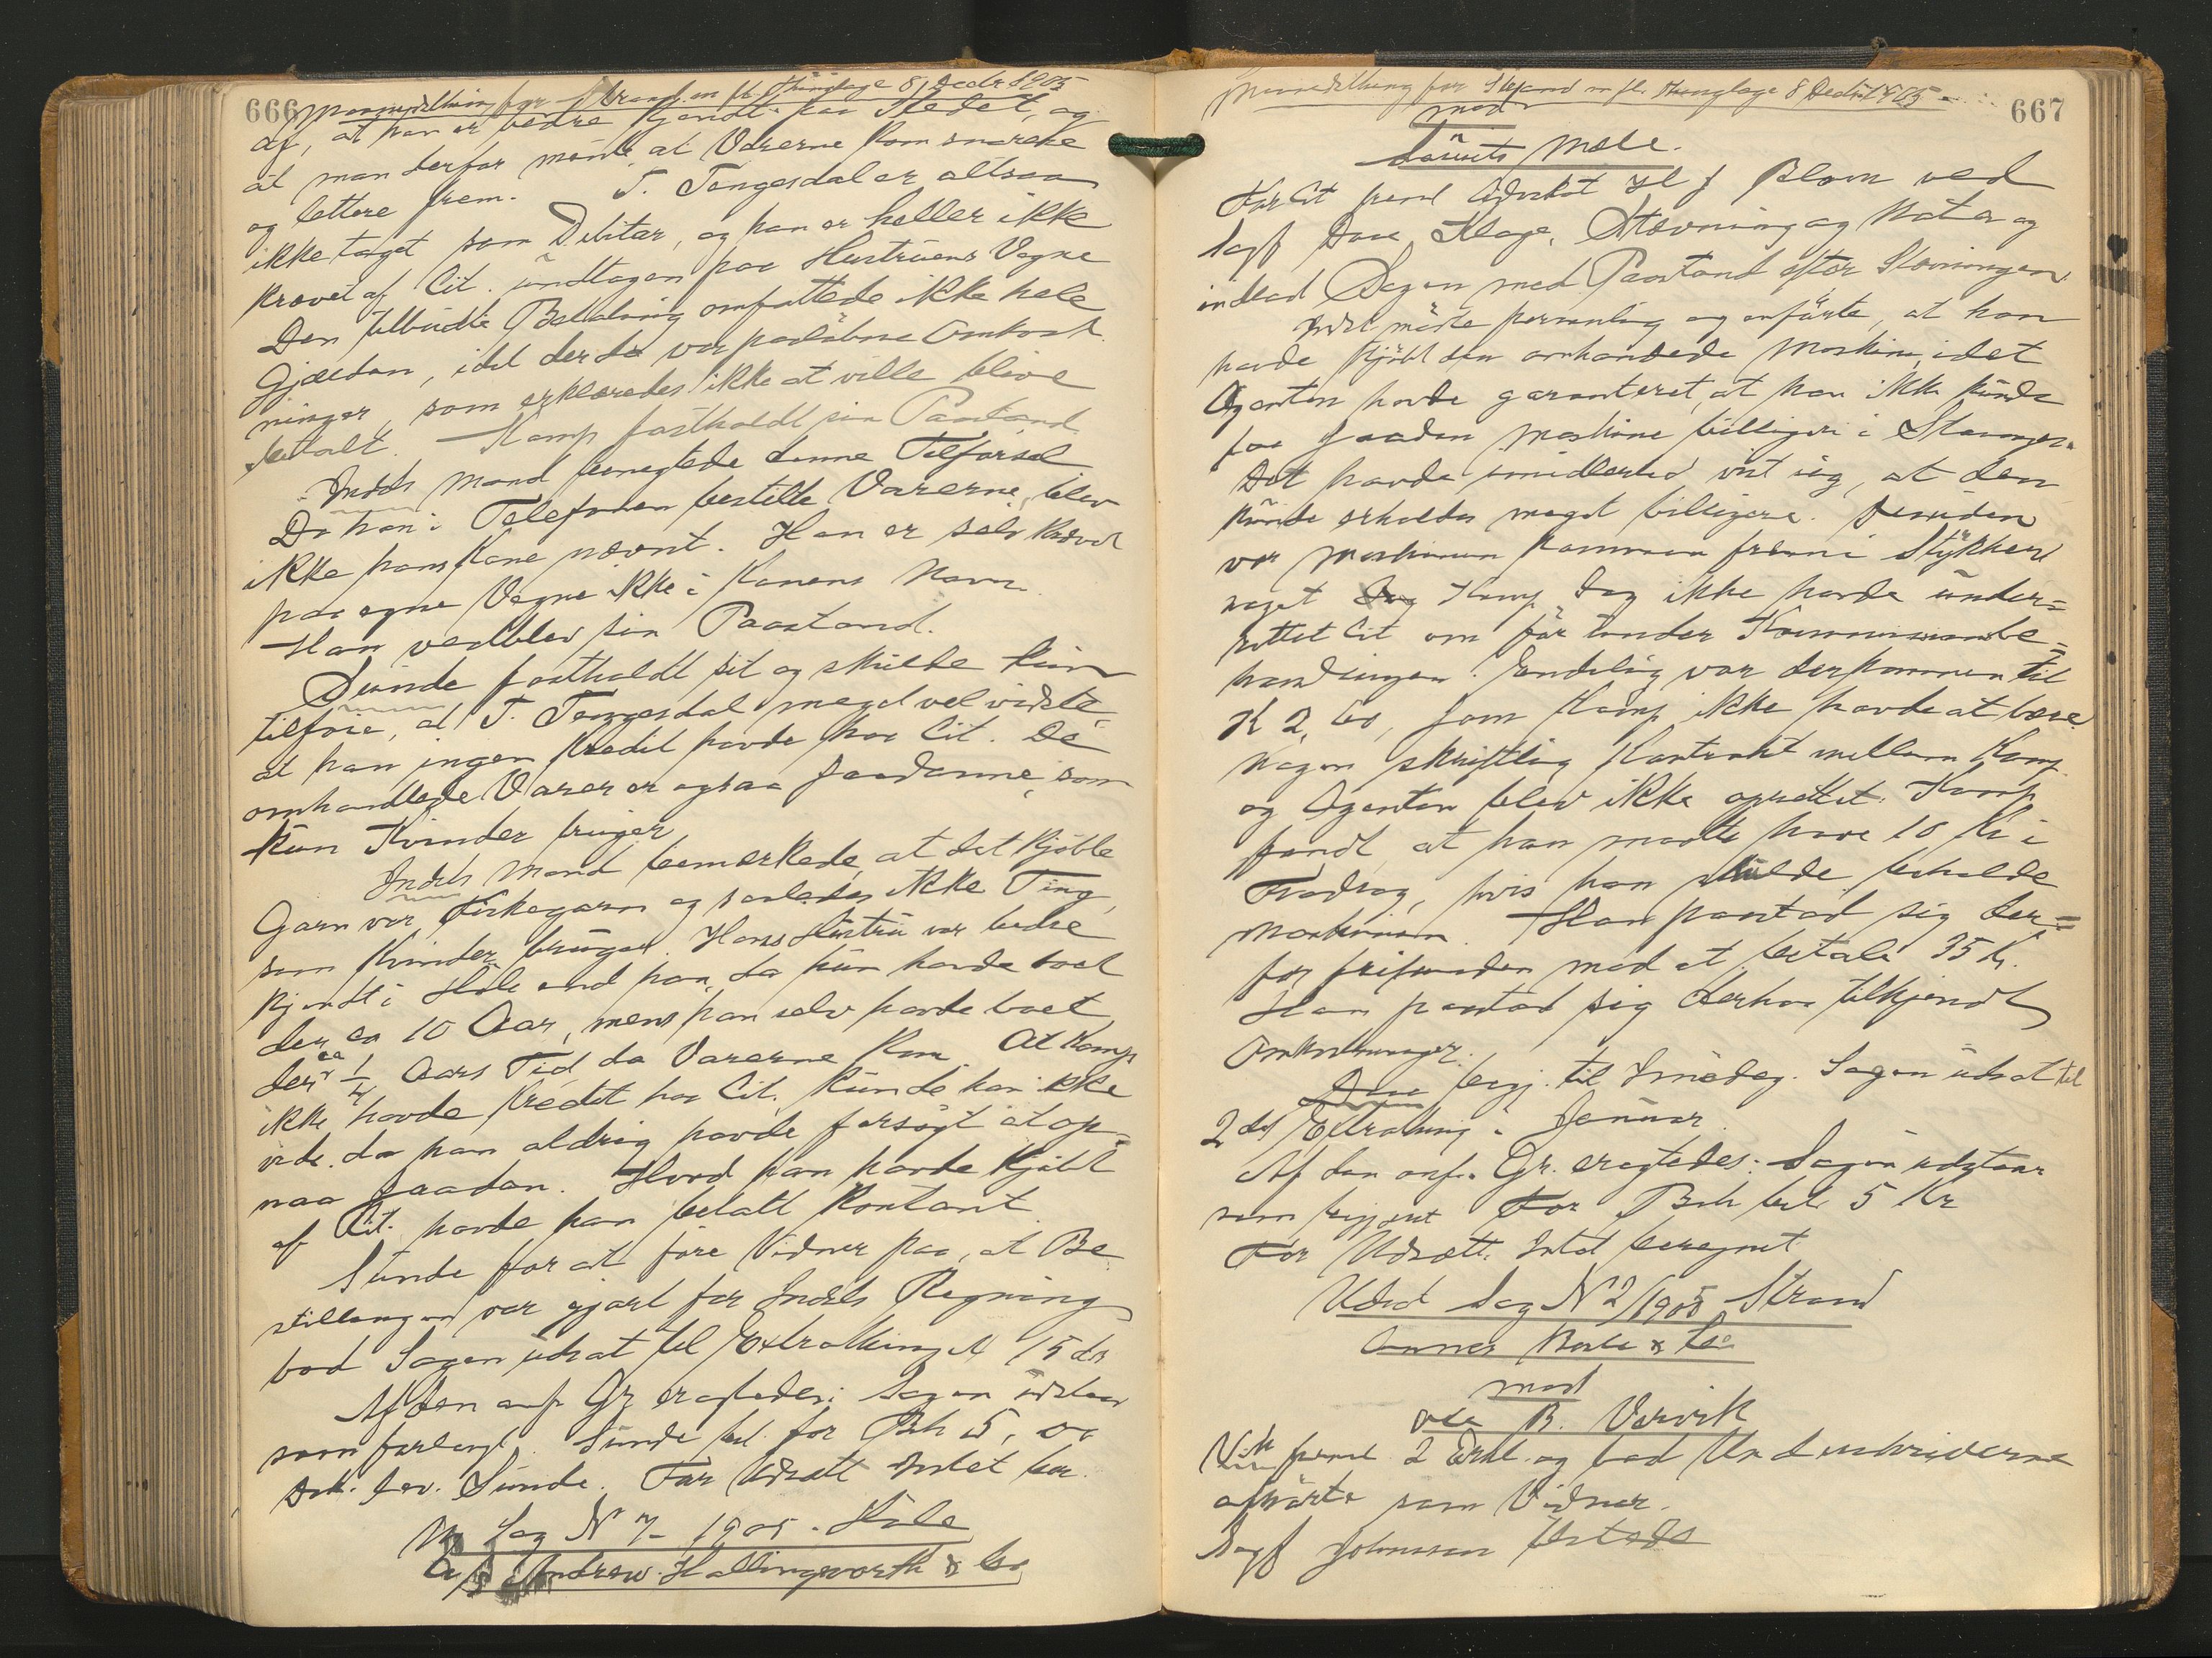 666
for Strand m fl. Thinglage 8/ Decbr 1905
af, at han er bedre kjendt paa Stedet, og
at man derfor mente at Varerne kom snarere
og lettere frem. T. Tengesdal er altsaa
ikke taget som Debitor, og han er heller ikke
krævet af Cit. undtagen paa Hustruens Vegne
Den tilbudte Betaling omfattede ikke hele
Gjælden, idet der da var paaløbne Omkost
ninger, som erklæredes ikke at ville blive
betalt. Kamp fastholdt sin Paastand
Indst Mand benegtede denne Tilførsel
Da han i Telefonen bestilte Varerne, blev
ikke hans Kone nævnt. Han er selv krævet
paa egne Vegne ikke i Konens Navn.
Han vedblev sin Paastand.
Sunde fastholdt sit og skulde kun
tilføie, at T. Tengesdal meget vel vidste,
at han ingen Kredit havde hos Cit. De
omhandlede Varer er ogsaa saadanne, som
kun Kvinder bruger
Indst Mand bemærkede, at det kjøbte
Garn var Fiskegarn og saaledes ikke Ting,
som Kvinder bruger. Hans Hustru var bedre
kjendt i Hole end han, da hun havde boet
der ca 10 Aar, mens han selv havde boet
der ca 1/4 Aars Tid da Varerne kom. At Kamp
ikke havde Kredit hos Cit. kunde han ikke
vide, da han aldrig havde forsøgt at op-
naa saadan. Hvad han havde kjøbt
af Cit. havde han betalt kontant.
Sunde for at føre Vidner paa, at Be
stillingen var gjort for Indsts Regning
bad Sagen udsat til Extrathing N 15 ds
Af den anf Gr eragtedes: Sagen udstaar
som forlangt. Sunde bet. for Beh 5,
Dok. lev. Sunde. For Udsætt Intet ber.
Ny Sag N 7 1905. Hole
Andrew Hallingworth & Co

667
for Strand m fl. Thinglage 8 Decbr 1905
mod
Laurits Mæle.
For Cit frem Advokat Hl J Blom ved
Sagf Doce, Klage, Stævning og Noter og
indlod Sagen med Paastand efter Stævningen
Indst mødte personlig og anførte, at han
havde kjøbt den omhandlede Maskine, idet
Agenten havde garanteret, at han ikke kunde
faa saadan Maskine billigere i Stavanger.
Det havde imidlertid vist sig, at den
kunde erholdes meget billigere. Desuden
var Maskinen kommen frem i Stykker
noget Kamp dog ikke havde under=
rettet Cit om før under Kommissionsbe=
handlingen. Endelig var der kommen til
K 2,60, som Kamp ikke havde at bære.
Nogen skriftlig Kontrakt mellem Kamp
og Agenten blev ikke oprettet. Kamp
fandt at han maatte have 10 Kr i
Fradrag, hvis han skulde beholde
Maskinen. Han paastod sig der=
for frifunden mod at betale 35 Kr.
Han paastod sig derhos tilkjendt
Omkostninger.
Doce begj. til Imødeg. Sagen udsat til
2det Extrathing i Januar.
Af den anf. Gr. eragtedes: Sagen udstaar
som begjært For Beh bet. 5 Kr
For Udsætt. Intet beregnet
Udsat Sag N 2/1905 Strand
& Co
mod
Ole B. Varvik
frem 2 Erkl. og bad Underskriverne
afhørte som Vidner.
Sagf Johnsen